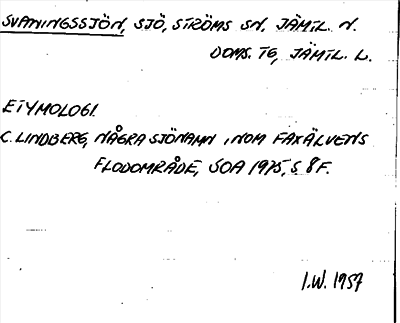 SVANINGSSJÖN, SJÖ, STRÖMS SN, JÄMTL. N.
DOMS. TG, JÄMTL. L.
ETYMOLOGI.
C. LINDBERG, NÅGRA SJÖNAMN INOM FAXÄLVENS
FLODOMRÅDE, SOA 1975, S 8 F.
I.W. 1957